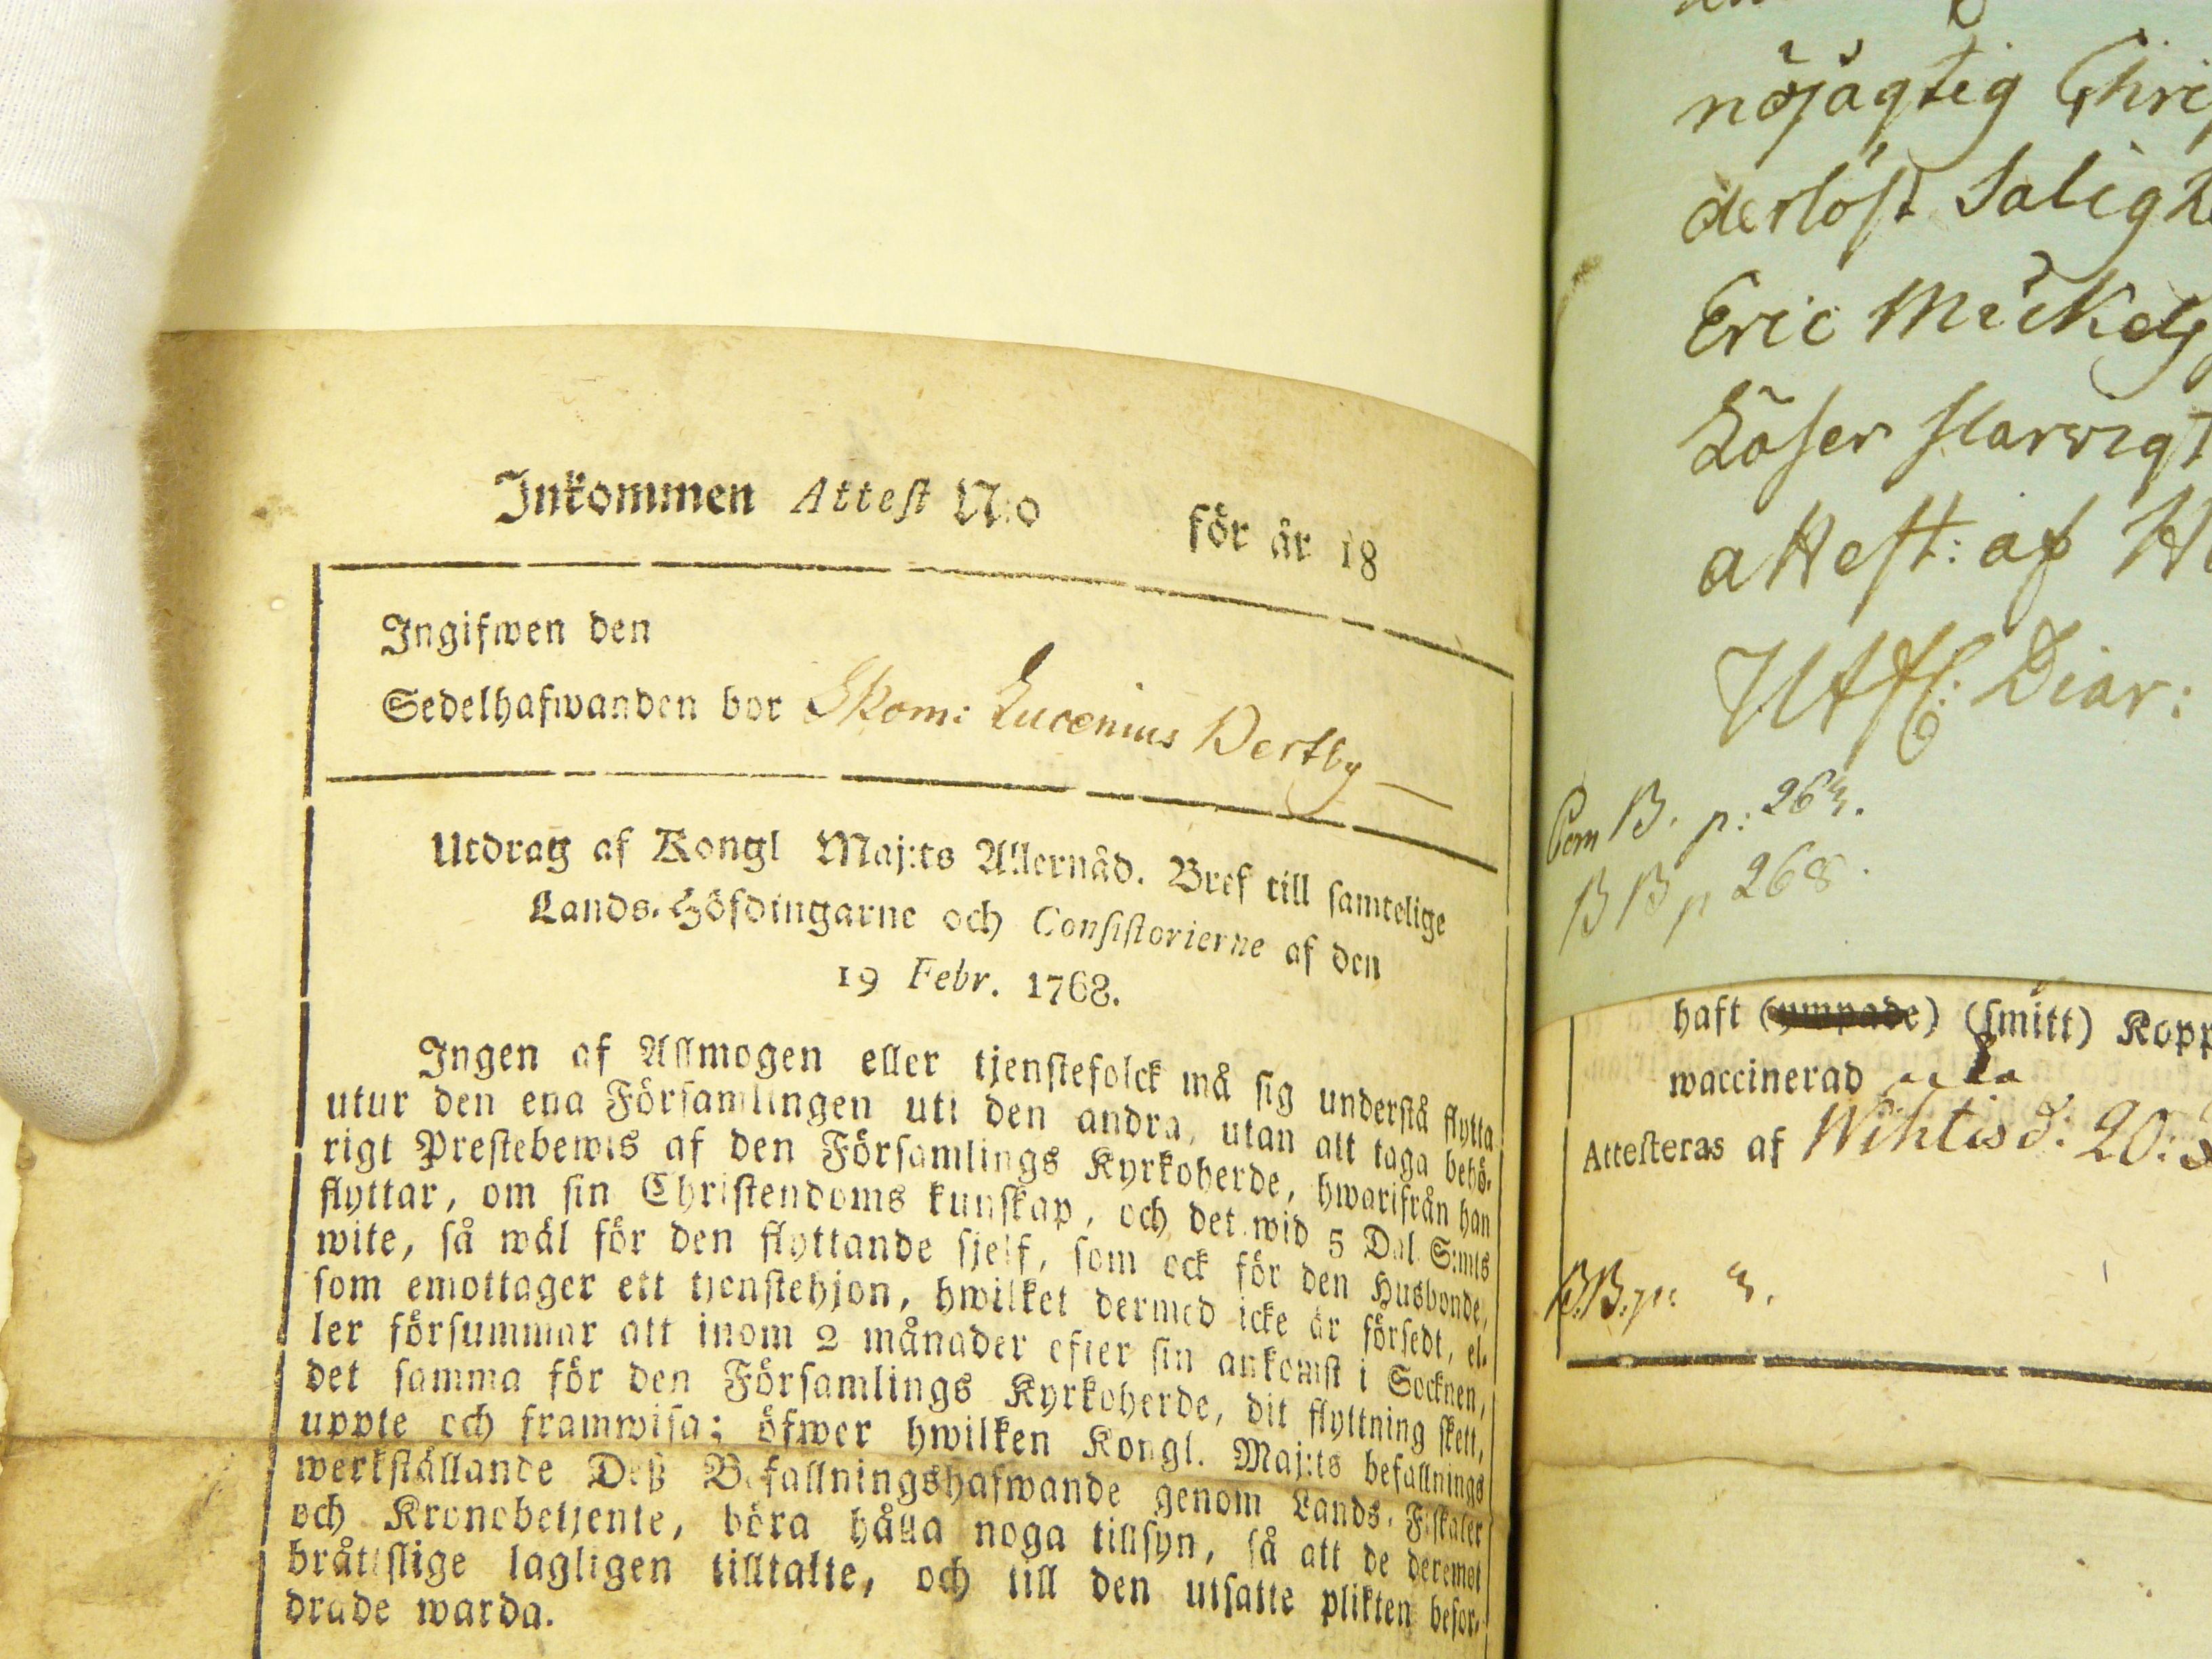 Inkommen Attest N:o för år 18
Ingifwen den
Sedelhafwanden bor Skom: Lucenius Dertby
Utdrag af Kongl Maj:ts Allernåd. Bref till samtelige
Lands-Höfdingarne och Consistorierne af den
19 Febr. 1768.
Ingen af Allmogen eller tjenstefolck må sig understå flytta
utur den ena Församlingen uti den andra, utan att taga behö-
rigt Prestebewis af den Församlings Kyrkoherde, hwarifrån han
flyttar, om sin Christendoms kunskap, och det wid 5 Dal. S:mts
wite, så wäl för den flyttande sjelf, som ock för den Husbonde,
som emottager ett tjenstehjon, hwilket dermed icke är försedt, el-
ler försummar att inom 2 månader efter sin ankomst i Socknen,
det samma för den Församlings Kyrkoherde, dit flyttning skett,
uppte och framwisa; öfwer hwilken Kongl. Maj:ts befallnings
werkställande Deß Befallningshafwande genom Lands-Fiskaler
och Kronobetjente, böra hålla noga tillsyn, så att de deremot
bråttslige lagligen tilltalte, och till den utsatte plikten befor-
drade warda.
nöjagtig Chri
derlöst Saligh
Eric Mickels
Läser slarvigt
attest: af
Utfl: Diar:
Com B. p: 263.
BB p 268.
haft (ympade) (smitt) Kopp
waccinerad
Attesteras af Wihtis d: 20:
B.B. p: 3.